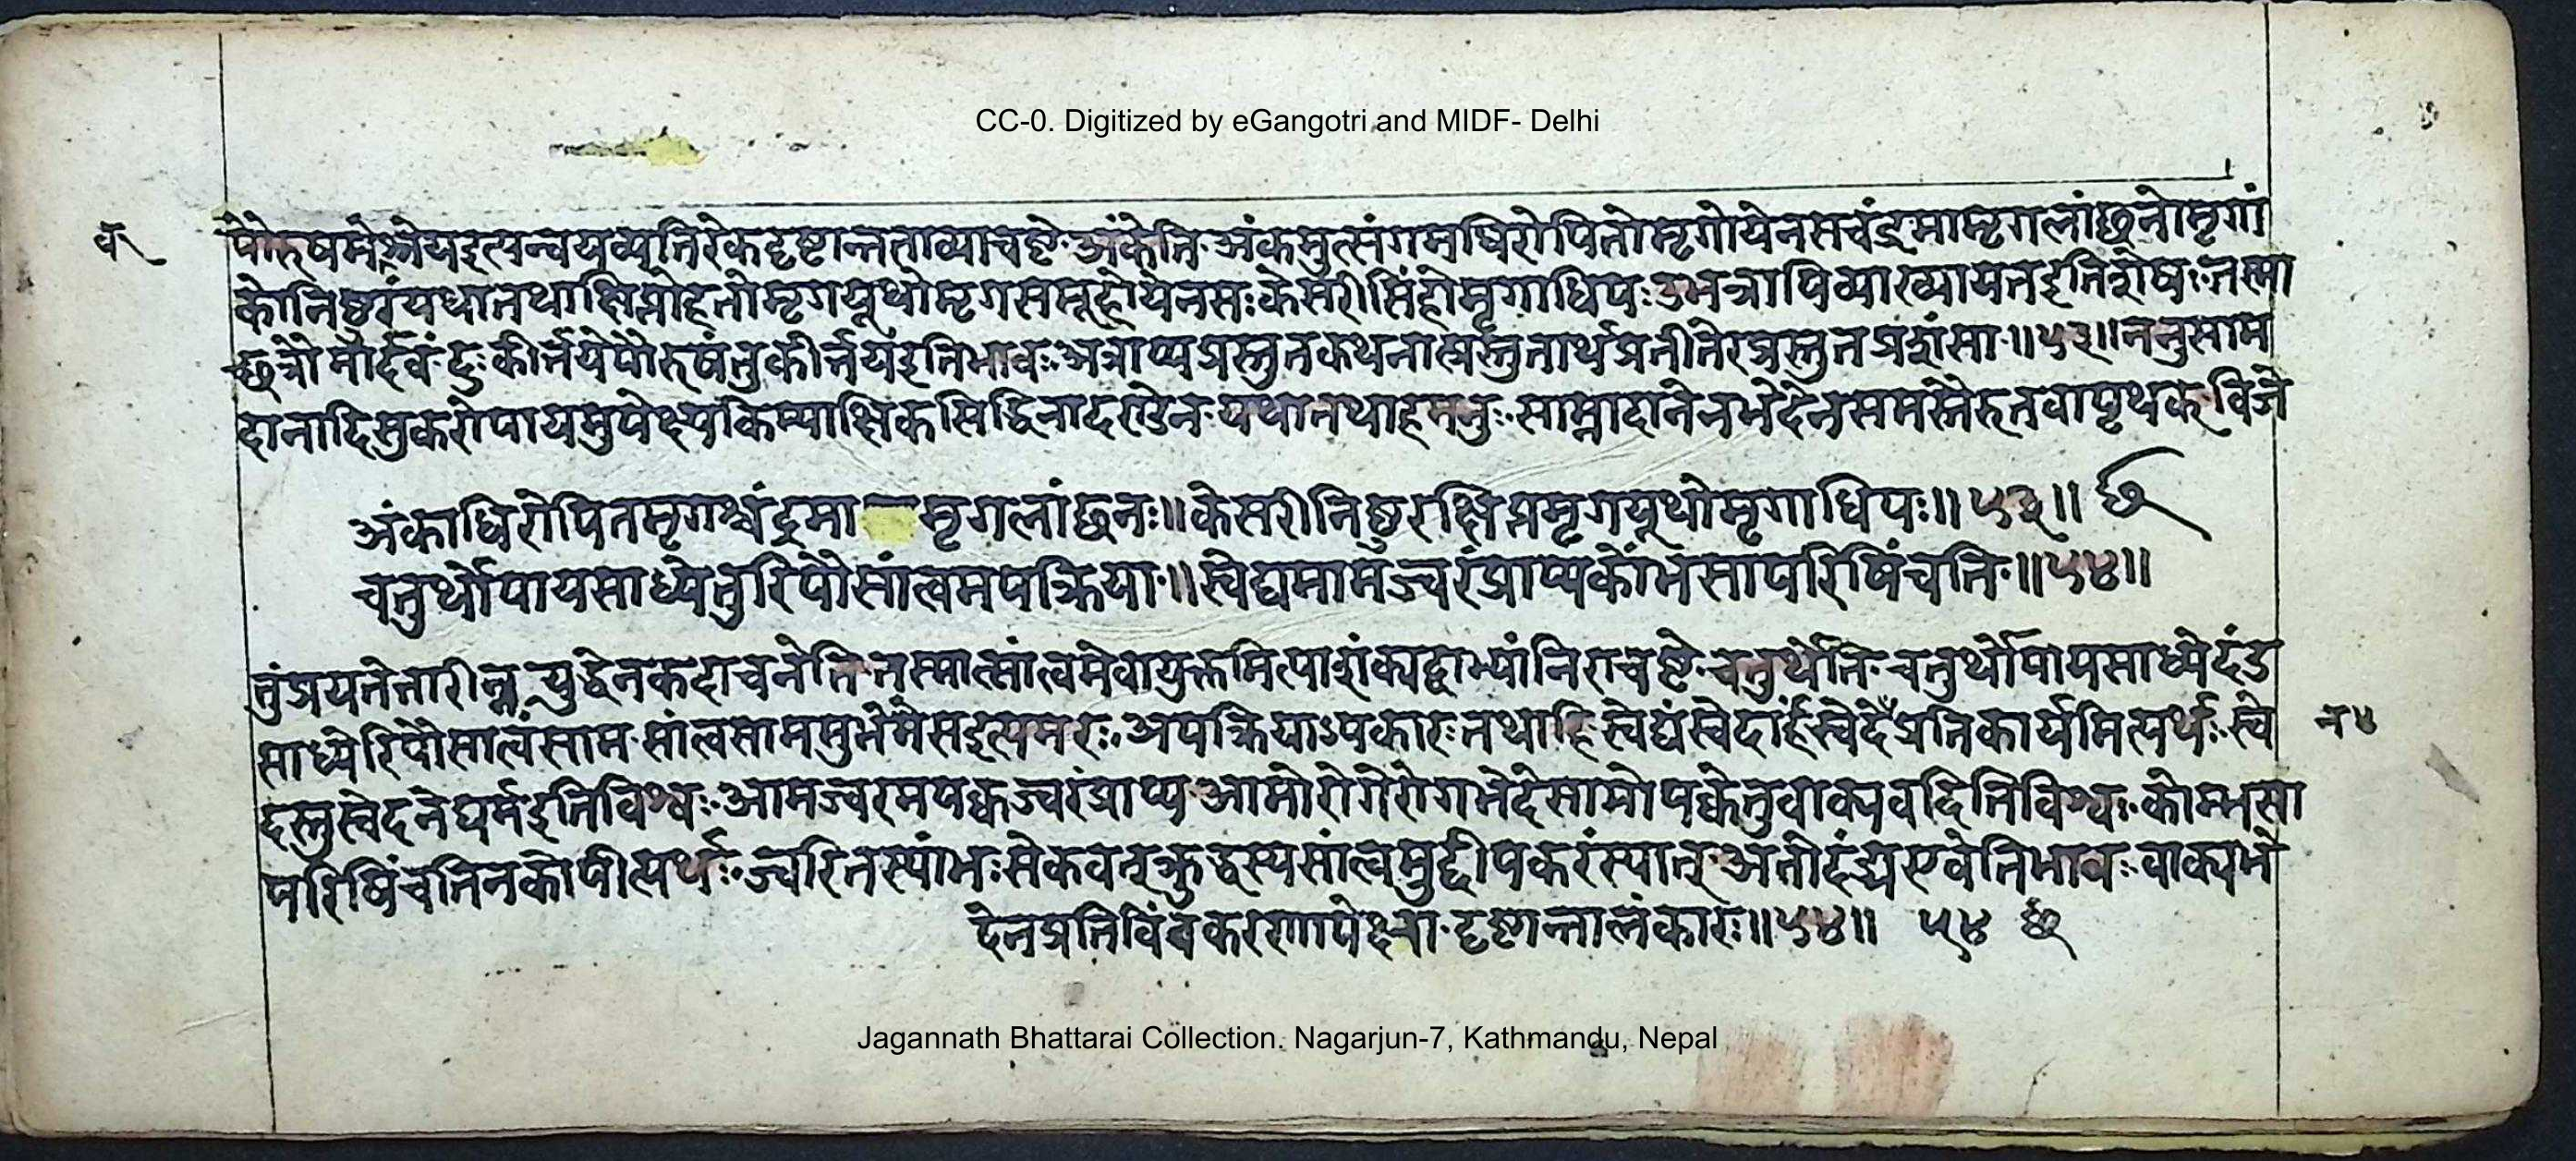 CC-0. Digitized by eGangotri and MIDF- Delhi
पौरुषमेवाश्रेयइत्यन्वयव्यतिरेकदृष्टान्तताव्याचष्टे अंकेति अंकमुत्संगमधिरोपितोमृगोयेनसचंद्रमामृगलांछनोमृगां
कोनिष्ठुरंयथातथाक्षिप्तोहतोमृगयूथोमृगसमूहोयेनसःकेसरीसिंहोमृगाधिपःउभत्रापिव्याख्यायतइतिशेषःतस्मा
च्छत्रौमार्दवंदुःकीर्तयेपौरुषंतुकीर्तयइतिभावःअत्राप्यप्रस्तुतकथनात्प्रस्तुतार्थप्रतीतेरप्रस्तुतप्रशंसा॥५३॥ननुसाम
दानादिसुकरोपायमुपेक्ष्यकिम्पाक्षिकसिद्धिनादण्डेन यथातथाहमनुः साम्नादानेनभेदेनसमस्तैरुतवापृथक् विजे
अंकाधिरोपितमृगश्चंद्रमा मृगलांछनः॥केसरीनिष्ठुरक्षिप्तमृगयूथोमृगाधिपः॥५३॥ छ
चतुर्थोपायसाध्येतुरिपौसांत्वमपक्रिया॥स्वेद्यमामज्वरंप्राप्यकोंभसापरिषिंचति॥५४॥
तुंप्रयतेतारीन्न युद्धेनकदाचनेतितस्मात्सांत्वमेवायुक्तमित्याशंक्यद्वाभ्यांनिराचष्टे चतुर्थेति चतुर्थोपायसाध्येदंड
साध्येरिपौसात्वंसाम सांत्वसाममुभेमैसइत्यमरः अपक्रियाऽपकारःतथाहिस्वेद्यंस्वेदार्हस्वेदैप्रतिकार्यमित्यर्थः स्वे
त४
दस्तुस्वेदनेघर्मइतिविश्वः आमज्वरमपक्वज्वरंप्राप्य आमोरोगेरोगभेदेसामोपक्वेतुवाक्यवदितिविश्वः कोम्भसा
परिषिंचतिनकोपीत्यर्थः ज्वरितस्यांभःसेकवत्क्रुद्धस्यसांत्वमुद्दीपकरंस्यात् अतोदंड्यएवेतिभावः वाक्यभे
देनप्रतिविंवकरणापेक्षा दृष्टान्तालंकारः॥५४॥ ५४ छ
Jagannath Bhattarai Collection. Nagarjun-7, Kathmandu, Nepal